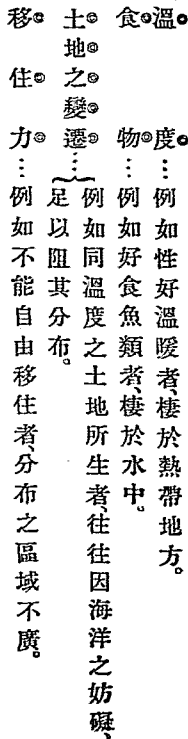 溫度…例如性好溫暖者、棲於熱帶地方。
食物…例如好食魚類者、棲於水中。
土地之變遷…例如同溫度之土地所生者、往往因海洋之妨礙、
足以阻其分布。
移住力…例如不能自由移住者、分布之區域不廣。